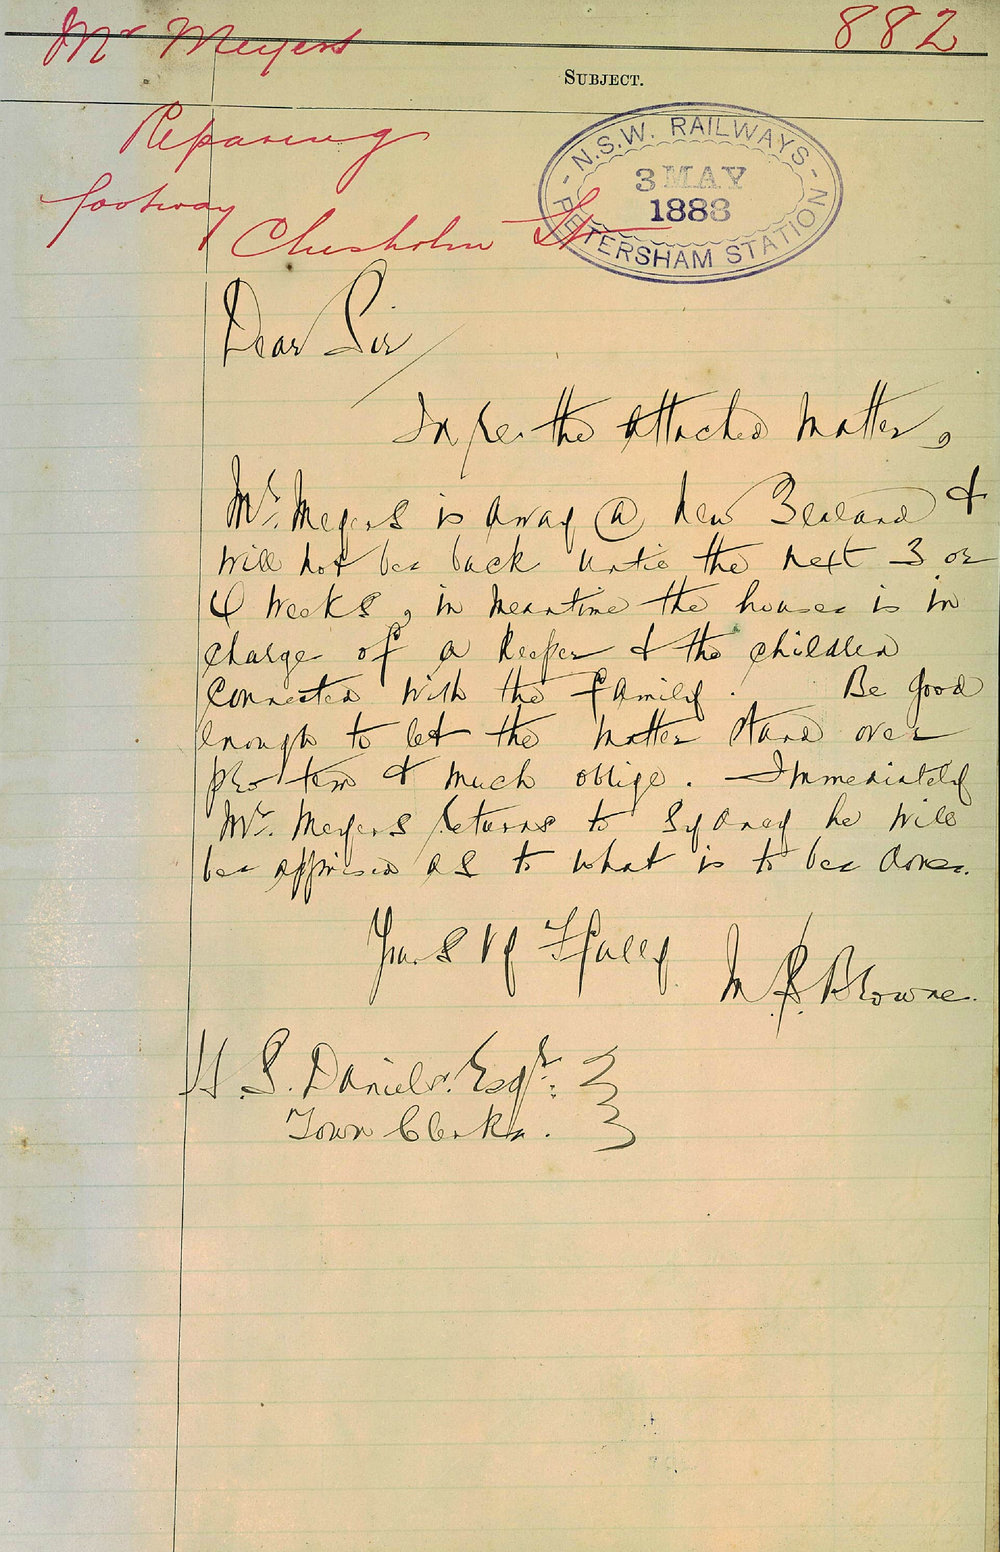 Mr Meyers
882
SUBJECT.
Reparing
footway
Chisholm St
N.S.W. RAILWAYS
3 MAY
1888
PETERSHAM STATION
Dear Sir
In re the attached matter,
Mr. Meyers is away @ New Zealand &
will not be back until the next 3 or
4 weeks, in meantime the house is in
charge of a keeper & the children
connected with the family. Be good
enough to let the matter stand over
pro tem & much oblige. Immediately
Mr. Meyers returns to Sydney he will
be apprised as to what is to be done.
Yours Vy Ffully
M. S. Browne.
H. S. Daniels. Esqr:
Town Clerk.